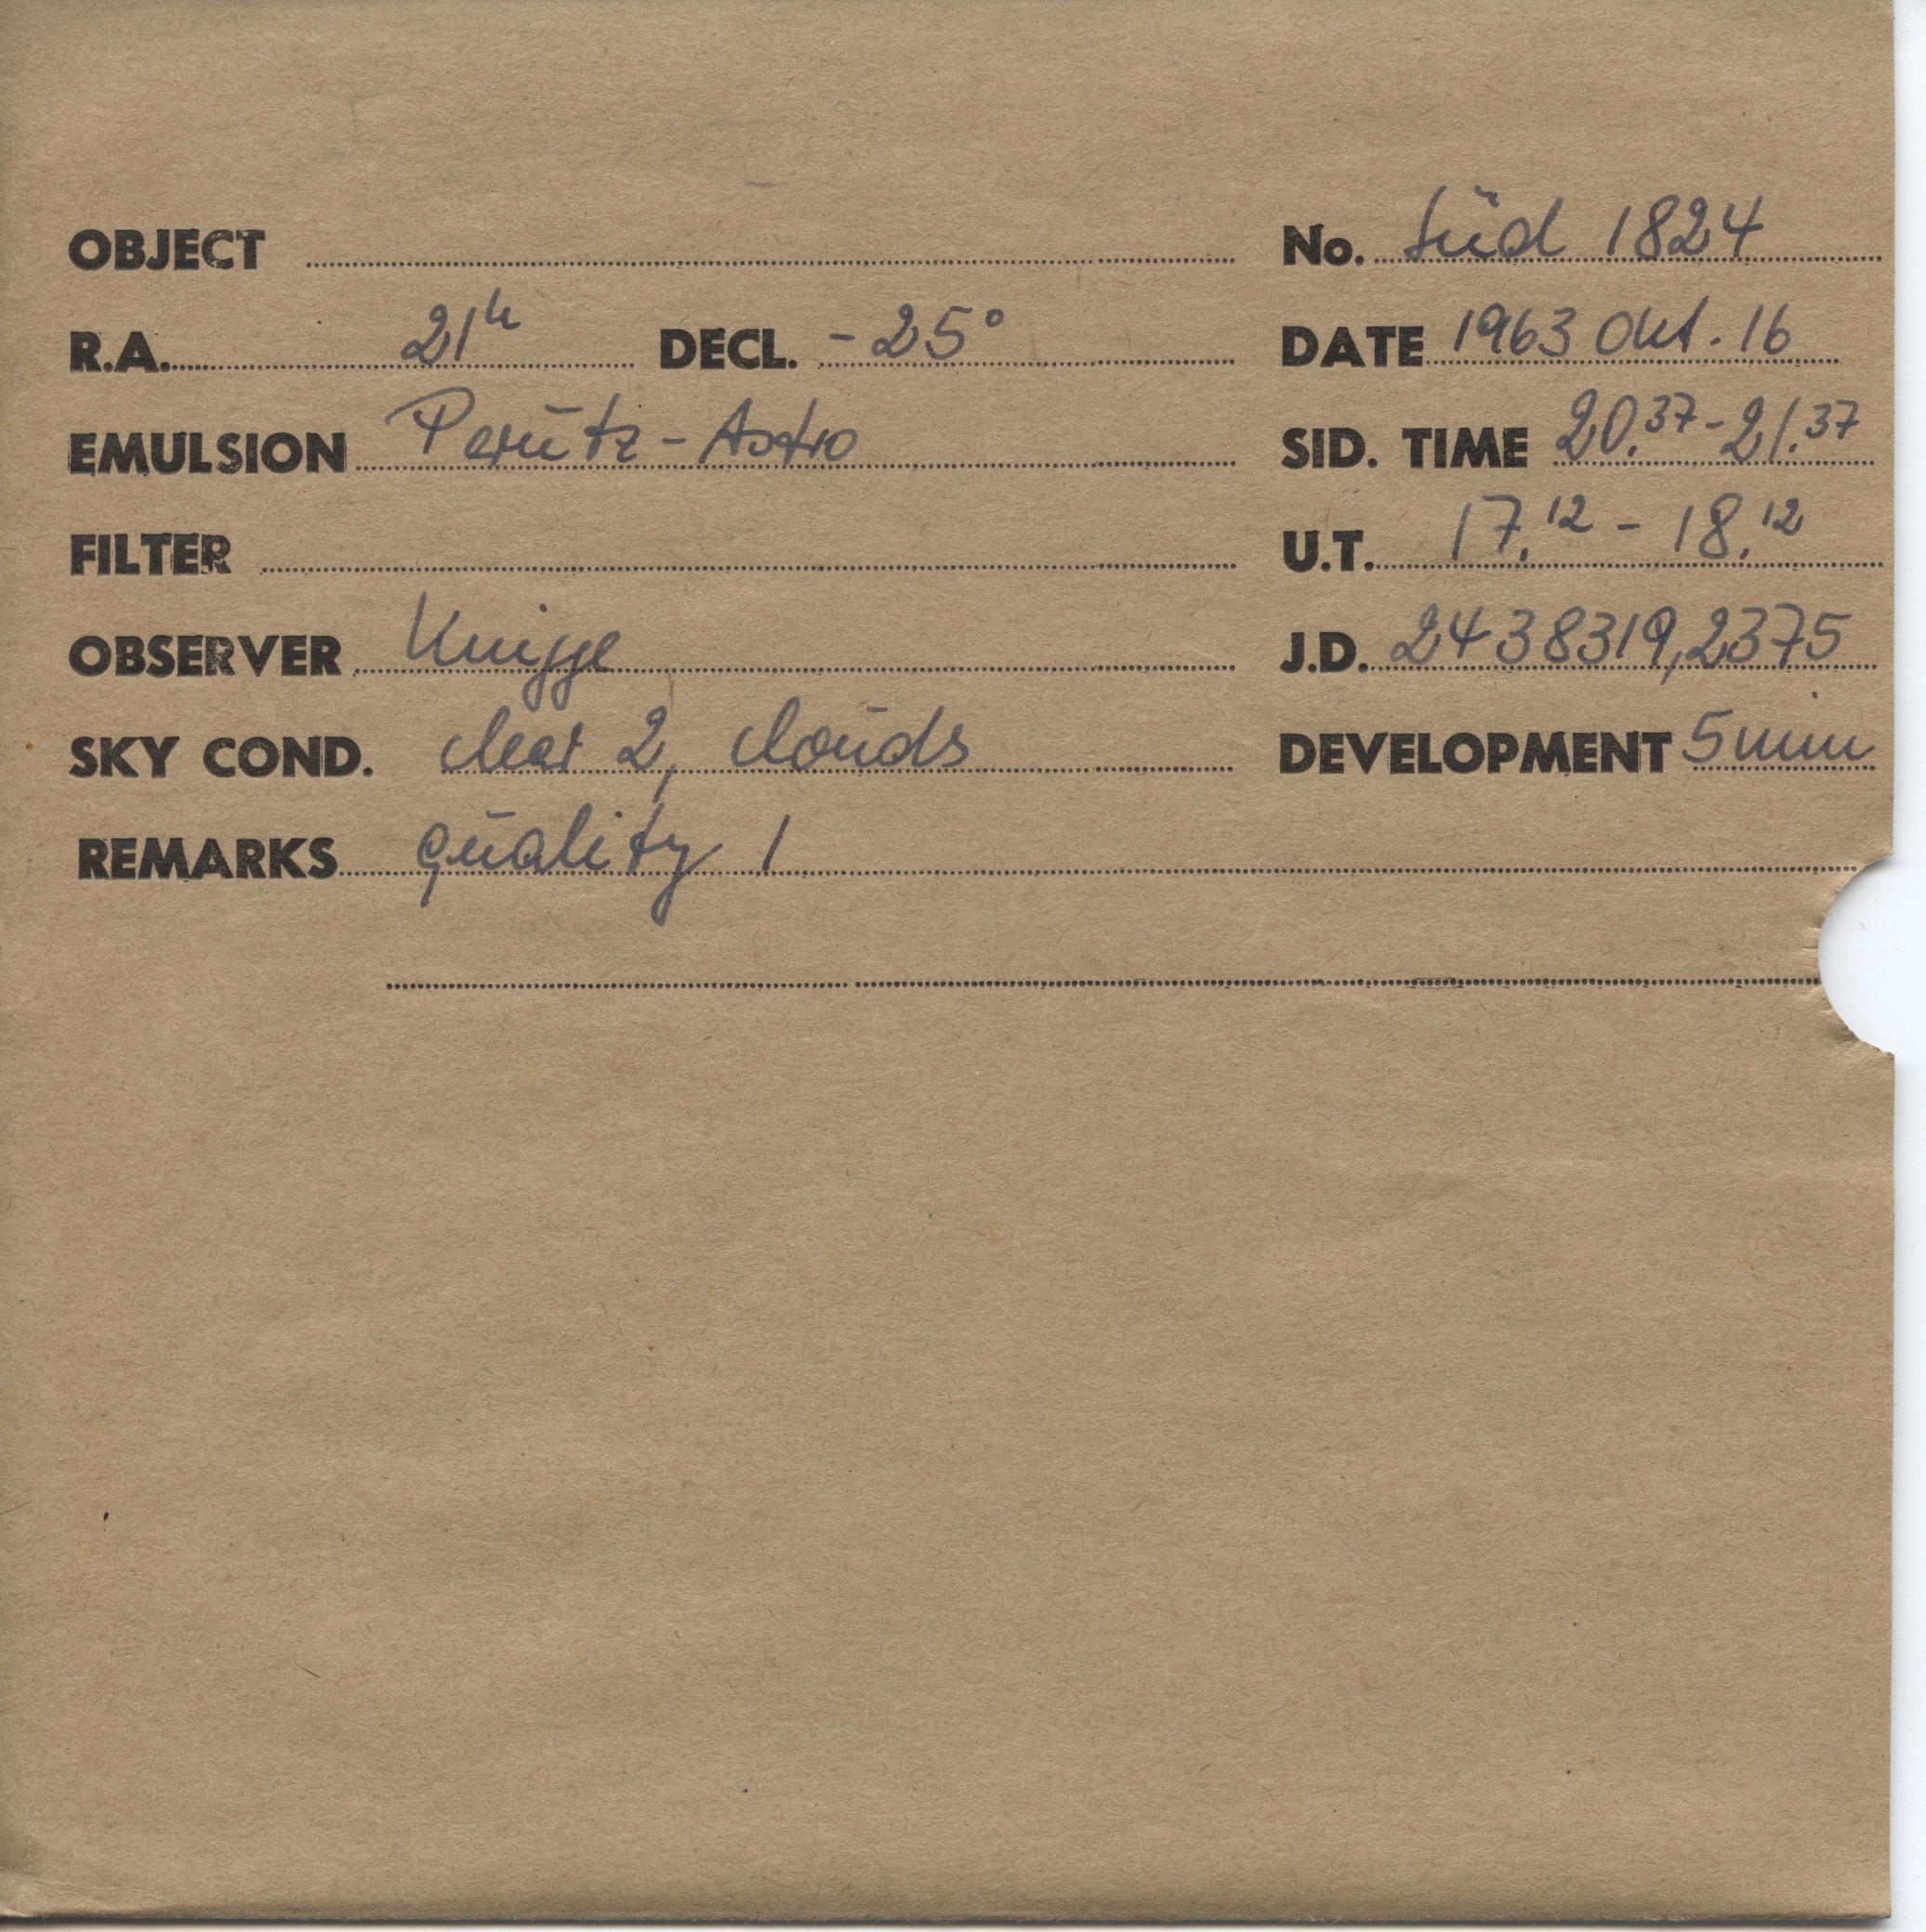 OBJECT No. Süd 1824
R.A. 21h DECL. -25° DATE 1963 Okt. 16
EMULSION Perutz-Astro SID. TIME 20.37-21.37
FILTER U.T. 17.12 - 18.12
OBSERVER Knigge J.D. 2438319,2375
SKY COND. clear 2, clouds DEVELOPMENT 5 min
REMARKS quality 1